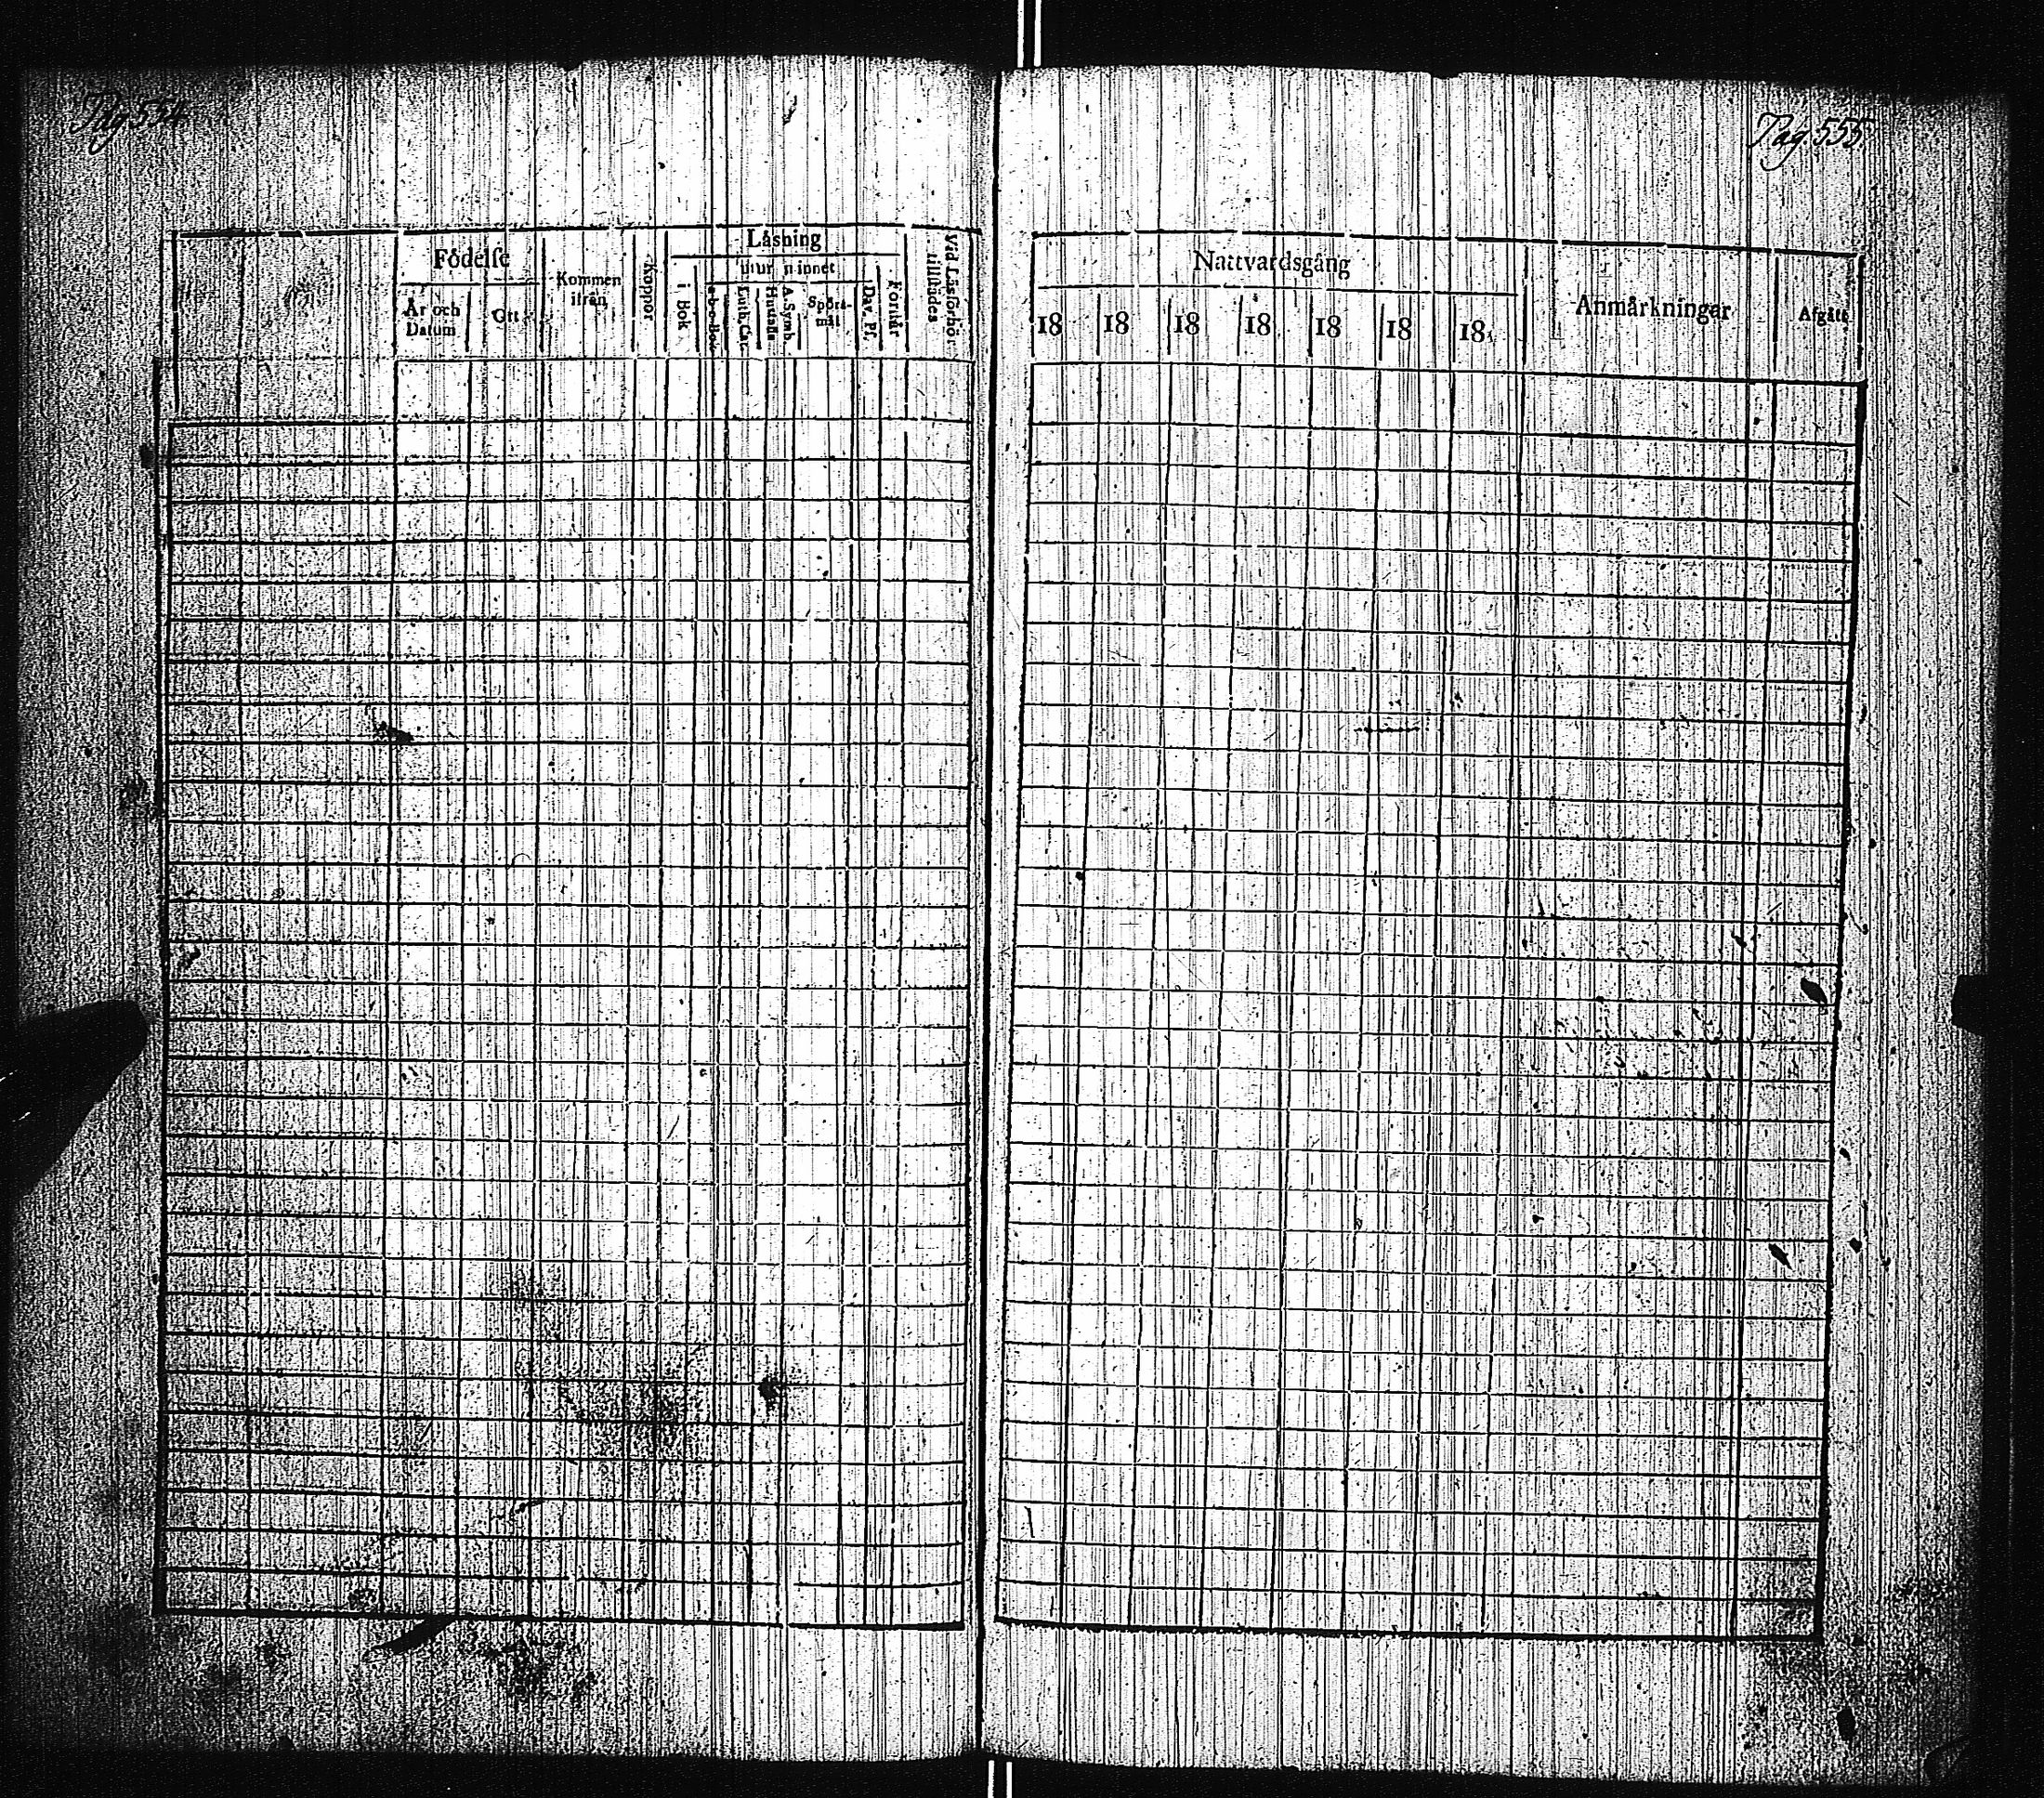 Pag 554
Pag. 555.
Födelse
År och Datum
Ort
Kommen ifrån
Koppor
Läsning
i Bok
utur minnet
a-b-c-Bok
Luth. Cat.
Hustafla
A. Symb.
Spörs-mål
Dav. Ps.
Förstår
Vid Läsförhör tillstädes
Nattvardsgång
18 18 18 18 18 18 18
Anmärkningar
Afgått